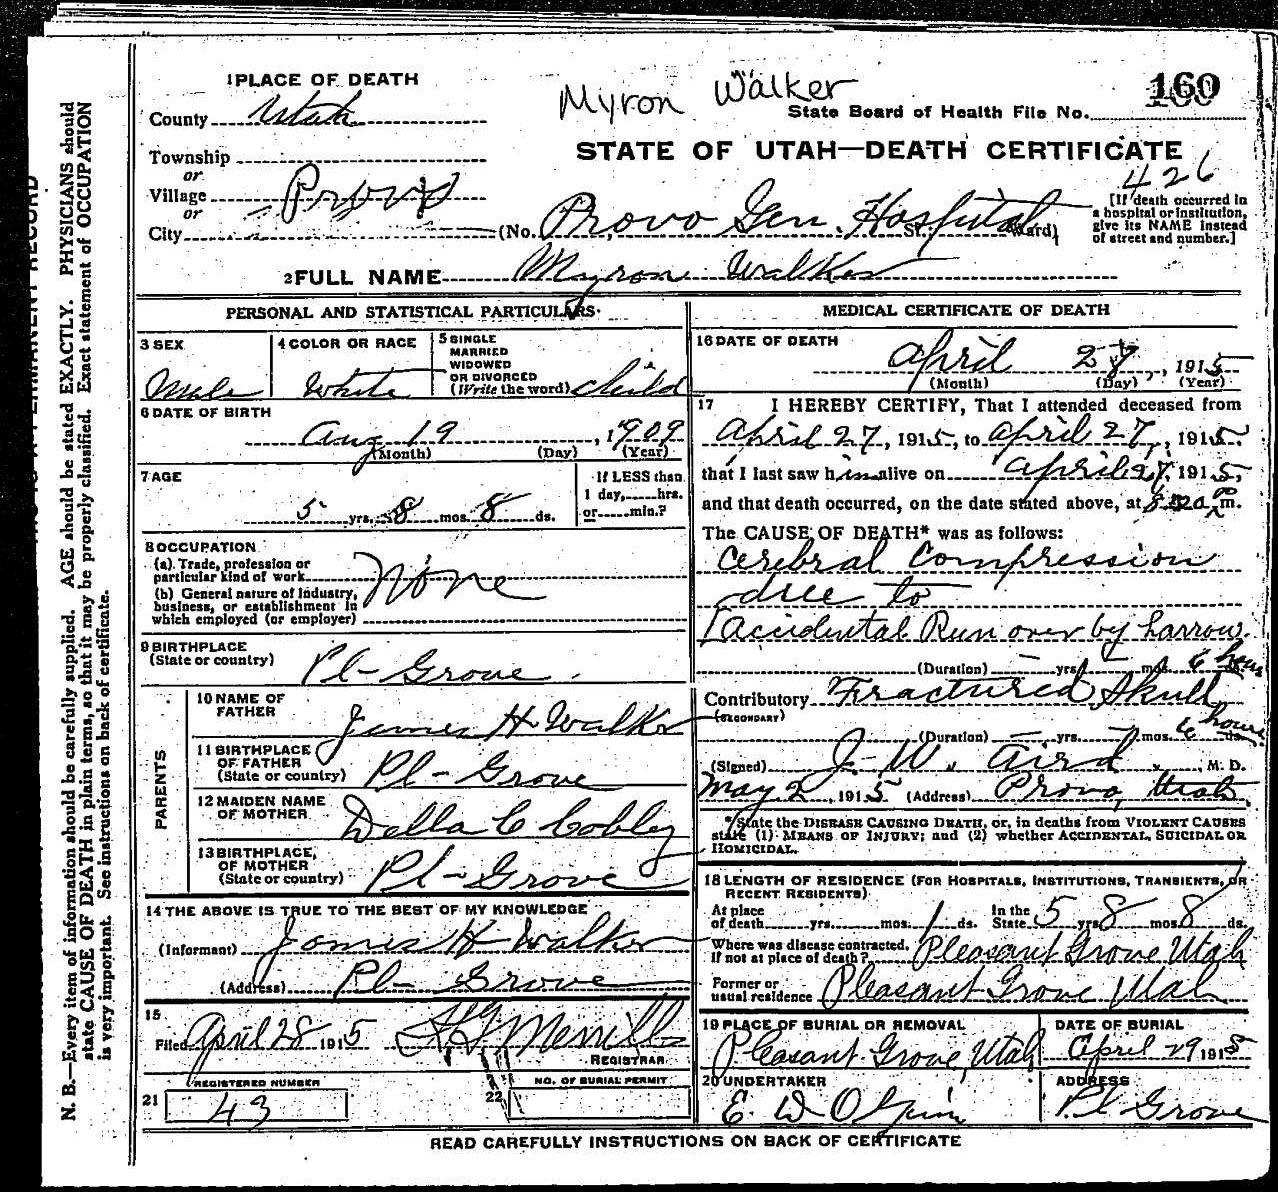 1 PLACE OF DEATH
Myron Walker
160
County Utah
State Board of Health File No.
STATE OF UTAH—DEATH CERTIFICATE
426
Township
or
Village Provo
or
City
(No. Provo Gen. Hospital St. Ward)
[If death occurred in
a hospital or institution,
give its NAME instead
of street and number.]
2 FULL NAME Myron Walker
PERSONAL AND STATISTICAL PARTICULARS
3 SEX
Male
4 COLOR OR RACE
White
5 SINGLE
MARRIED
WIDOWED
OR DIVORCED
(Write the word) child
6 DATE OF BIRTH
Aug 19, 1909
(Month) (Day) (Year)
7 AGE
5 yrs. 8 mos. 8 ds.
If LESS than
1 day,......hrs.
or......min.?
8 OCCUPATION
(a) Trade, profession or
particular kind of work
None
(b) General nature of Industry,
business, or establishment in
which employed (or employer)
9 BIRTHPLACE
(State or country)
Pl- Grove
PARENTS
10 NAME OF
FATHER
James H Walker
11 BIRTHPLACE
OF FATHER
(State or country)
Pl- Grove
12 MAIDEN NAME
OF MOTHER
Della C Cobley
13 BIRTHPLACE,
OF MOTHER
(State or country)
Pl- Grove
14 THE ABOVE IS TRUE TO THE BEST OF MY KNOWLEDGE
(Informant) James H Walker
(Address) Pl- Grove
15
Filed April 28 1915
Merrill
REGISTRAR
REGISTERED NUMBER
21 43
NO. OF BURIAL PERMIT
22
MEDICAL CERTIFICATE OF DEATH
16 DATE OF DEATH
April 27, 1915
(Month) (Day) (Year)
17 I HEREBY CERTIFY, That I attended deceased from
April 27, 1915, to April 27, 1915,
that I last saw him alive on April 27, 1915,
and that death occurred, on the date stated above, at m.
The CAUSE OF DEATH* was as follows:
Cerebral Compression
due to
Accidental Run over by harrow.
(Duration) yrs. mos. 6 hours
Contributory Fractured Skull
(SECONDARY)
(Duration) yrs. mos. 6 hours ds.
(Signed) J. W. Aird, M. D.
May 2, 1915 (Address) Provo, Utah
*State the DISEASE CAUSING DEATH, or, in deaths from VIOLENT CAUSES
state (1) MEANS OF INJURY; and (2) whether ACCIDENTAL, SUICIDAL OR
HOMICIDAL.
18 LENGTH OF RESIDENCE (FOR HOSPITALS, INSTITUTIONS, TRANSIENTS, OR
RECENT RESIDENTS)
At place
of death yrs. mos. 1 ds.
In the
State 5 yrs. 8 mos. 8 ds.
Where was disease contracted,
if not at place of death? Pleasant Grove Utah
Former or
usual residence Pleasant Grove Utah
19 PLACE OF BURIAL OR REMOVAL
Pleasant Grove, Utah
DATE OF BURIAL
April 29 1915
20 UNDERTAKER
ADDRESS
Pl Grove
READ CAREFULLY INSTRUCTIONS ON BACK OF CERTIFICATE
N. B.—Every item of information should be carefully supplied. AGE should be stated EXACTLY. PHYSICIANS should
state CAUSE OF DEATH in plain terms, so that it may be properly classified. Exact statement of OCCUPATION
is very important. See instructions on back of certificate.